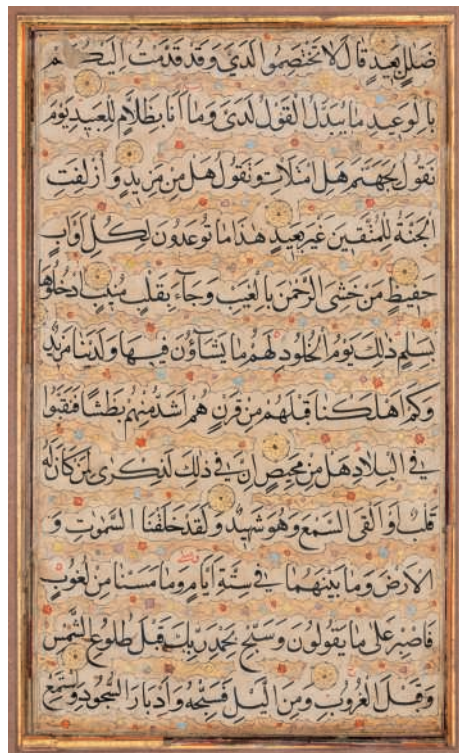 ضلل بعيد قال لا تختصموا لدي وقد قدمت اليكم
بالوعيد ما يبدل القول لدي وما انا بظلام للعبيد يوم
نقول لجهنم هل امتلات ونقول هل من مزيد وازلفت
الجنة للمتقين غير بعيد هذا ما توعدون لكل اواب
حفيظ من خشي الرحمن بالغيب وجاء بقلب منيب ادخلوها
بسلم ذلك يوم الخلود لهم ما يشاؤن فيها ولدينا مزيد
وكم اهلكنا قبلهم من قرن هم اشد منهم بطشا فنقبوا
في البلاد هل من محيص ان في ذلك لذكرى لمن كان له
قلب او القى السمع وهو شهيد ولقد خلقنا السموت و
الارض وما بينهما في ستة ايام وما مسنا من لغوب
فاصبر على ما يقولون وسبح بحمد ربك قبل طلوع الشمس
وقبل الغروب ومن اليل فسبحه وادبار السجود واستمع